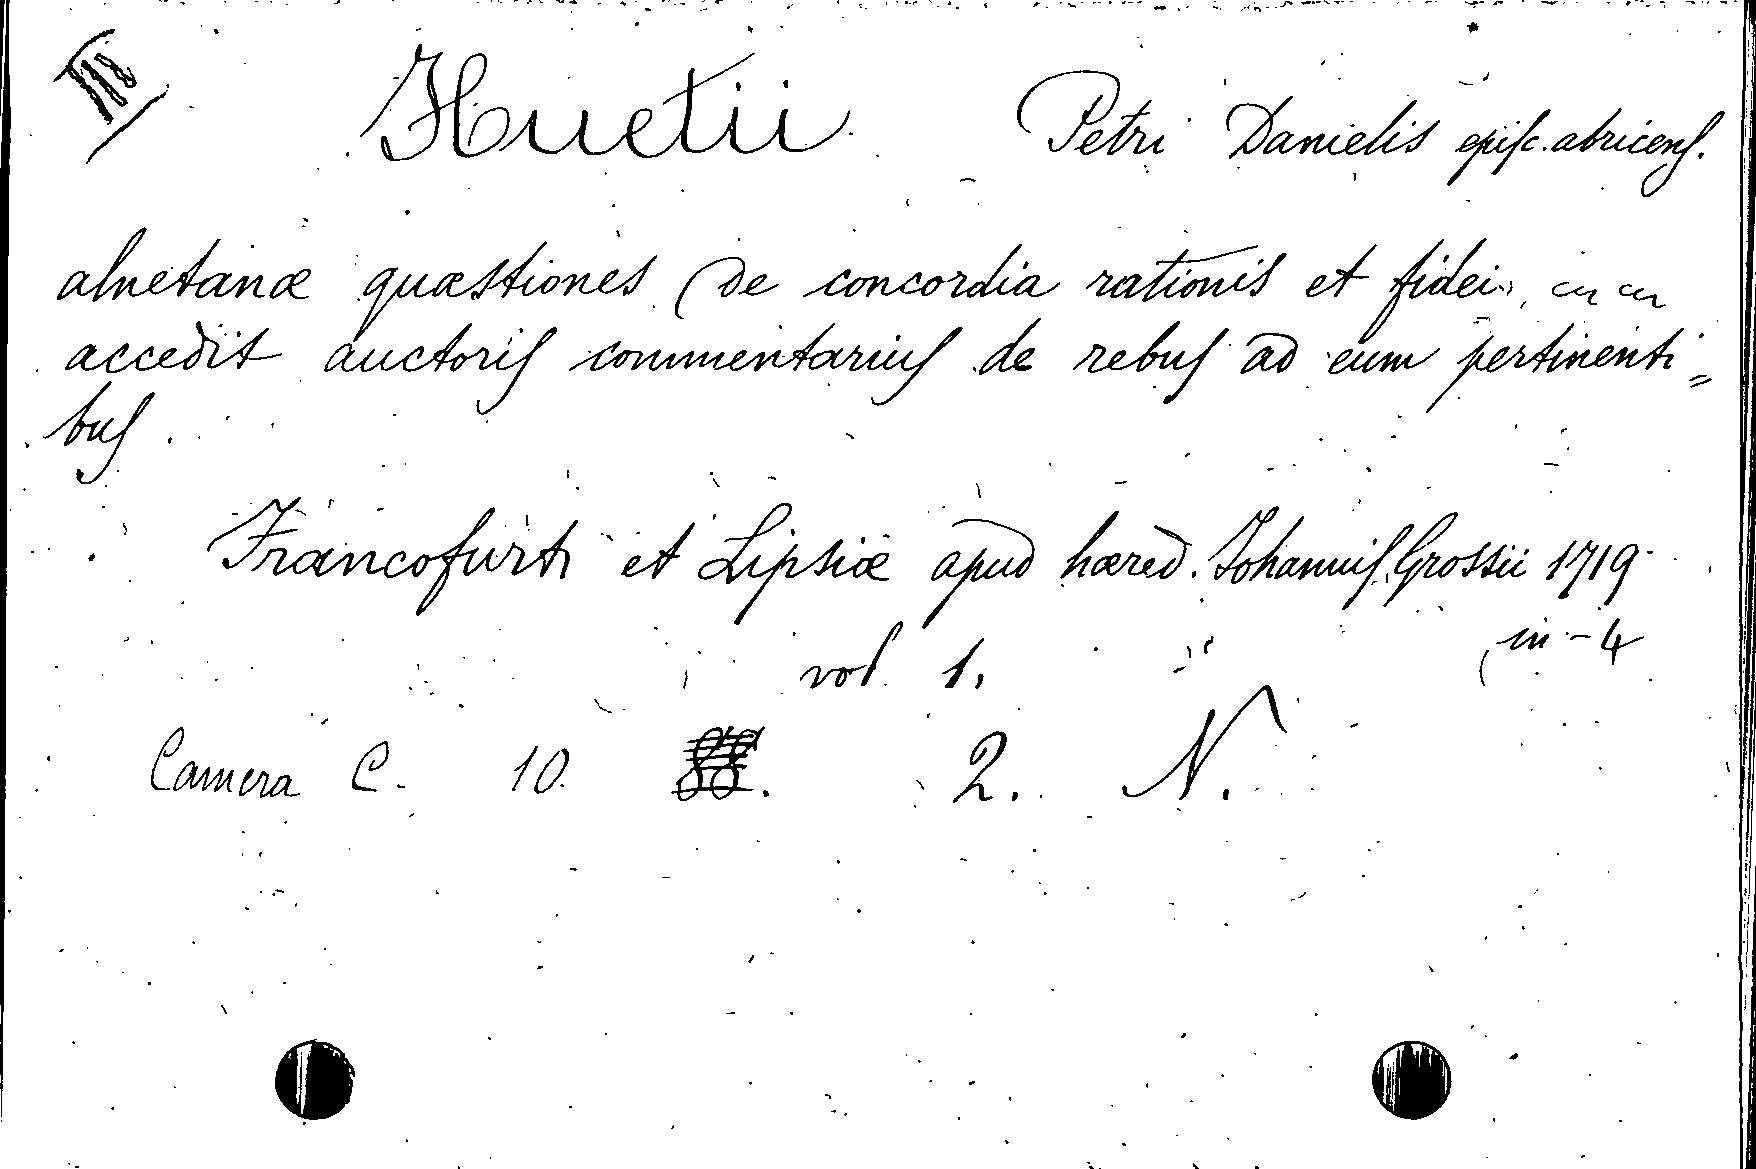 III
Huetii Petri Danielis episc. abricens.
alnetanæ quæstiones (de concordia rationis et fidei,
accedit auctoris commentarius de rebus ad eum pertinenti=
bus.
Francofurti et Lipsiæ apud hæred. Johannis Grossii 1719
in-4
vol. 1.
Camera C. 10. 2. N.